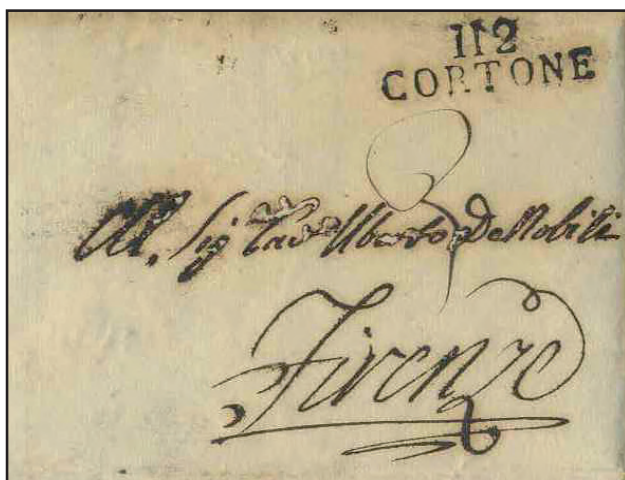 112
CORTONE
3
All. Sig Cav.re Uberto De Nobili
Firenze